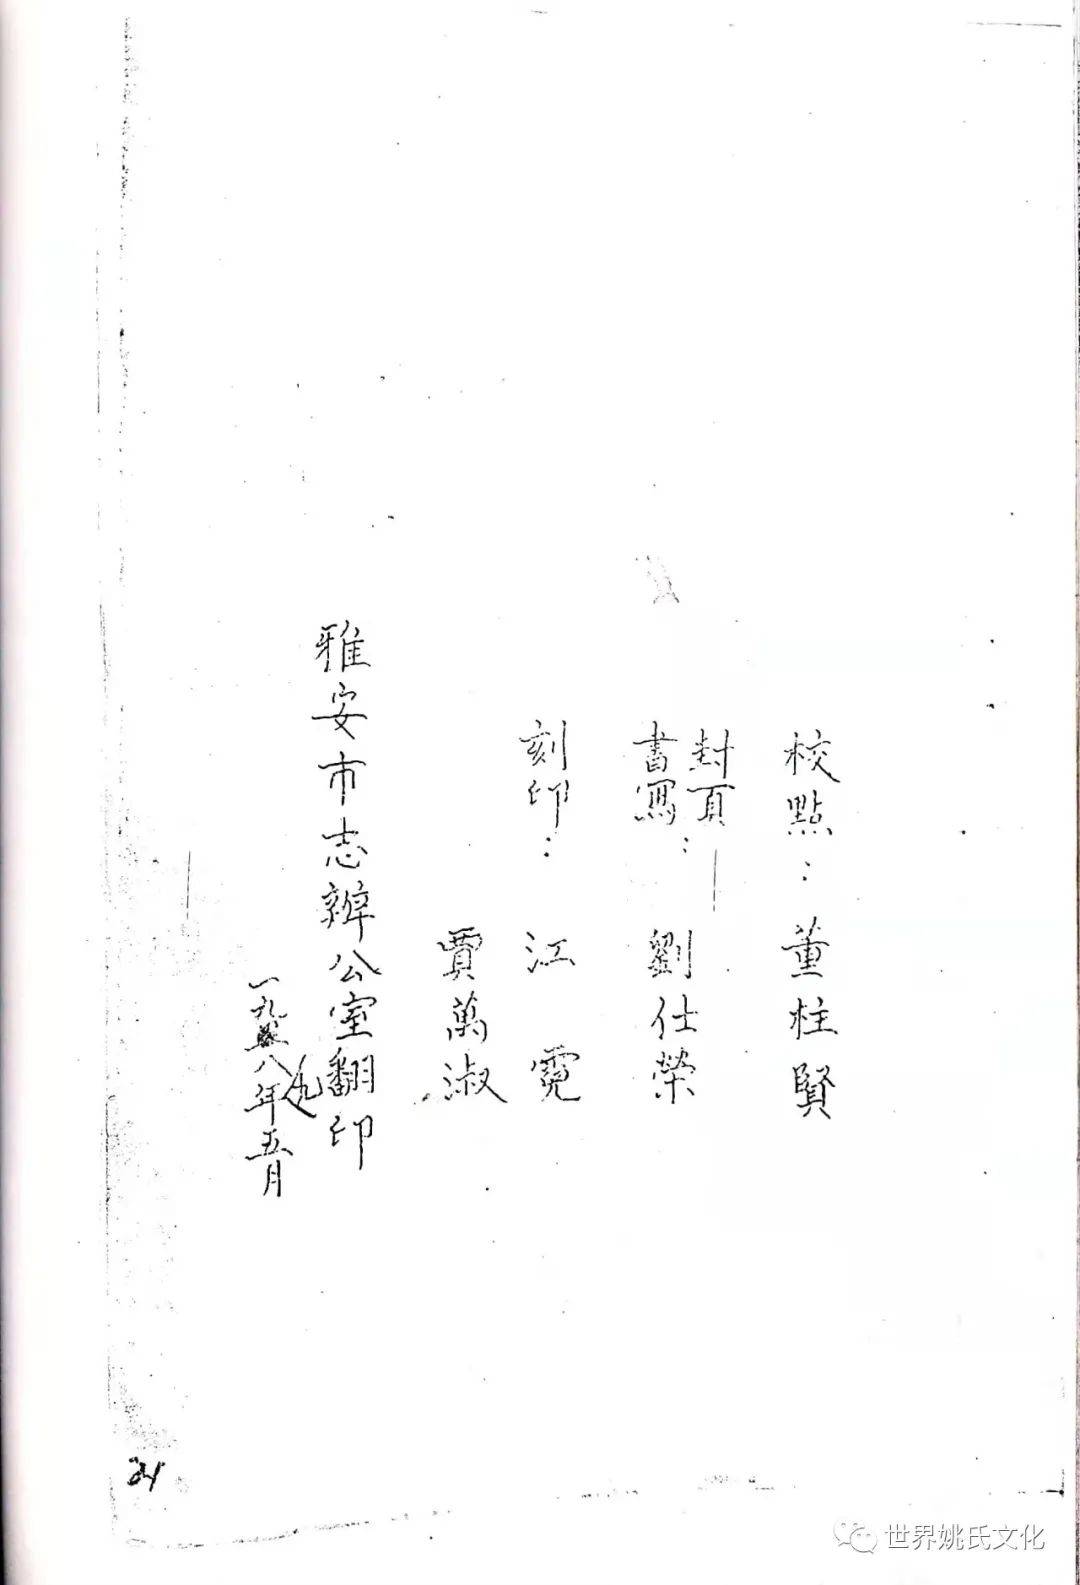 校點：董柱賢
封頁
書寫：劉仕榮
刻印：江霓
賈萬淑
雅安市志辦公室翻印
一九八九年五月
21
世界姚氏文化